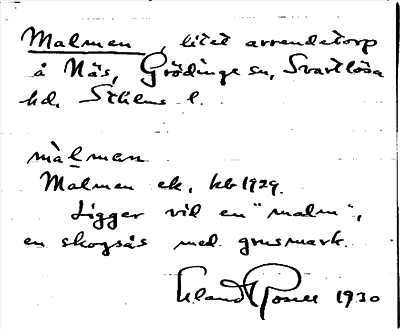 Malmen, litet arrendetorp
å Näs, Grödinge sn, Svartlösa
hd. Sthlms l.
màlmen
Malmen ek, kb 1929.
Ligger vid en "malm",
en skogsås med grusmark.
Erland Rosell 1930